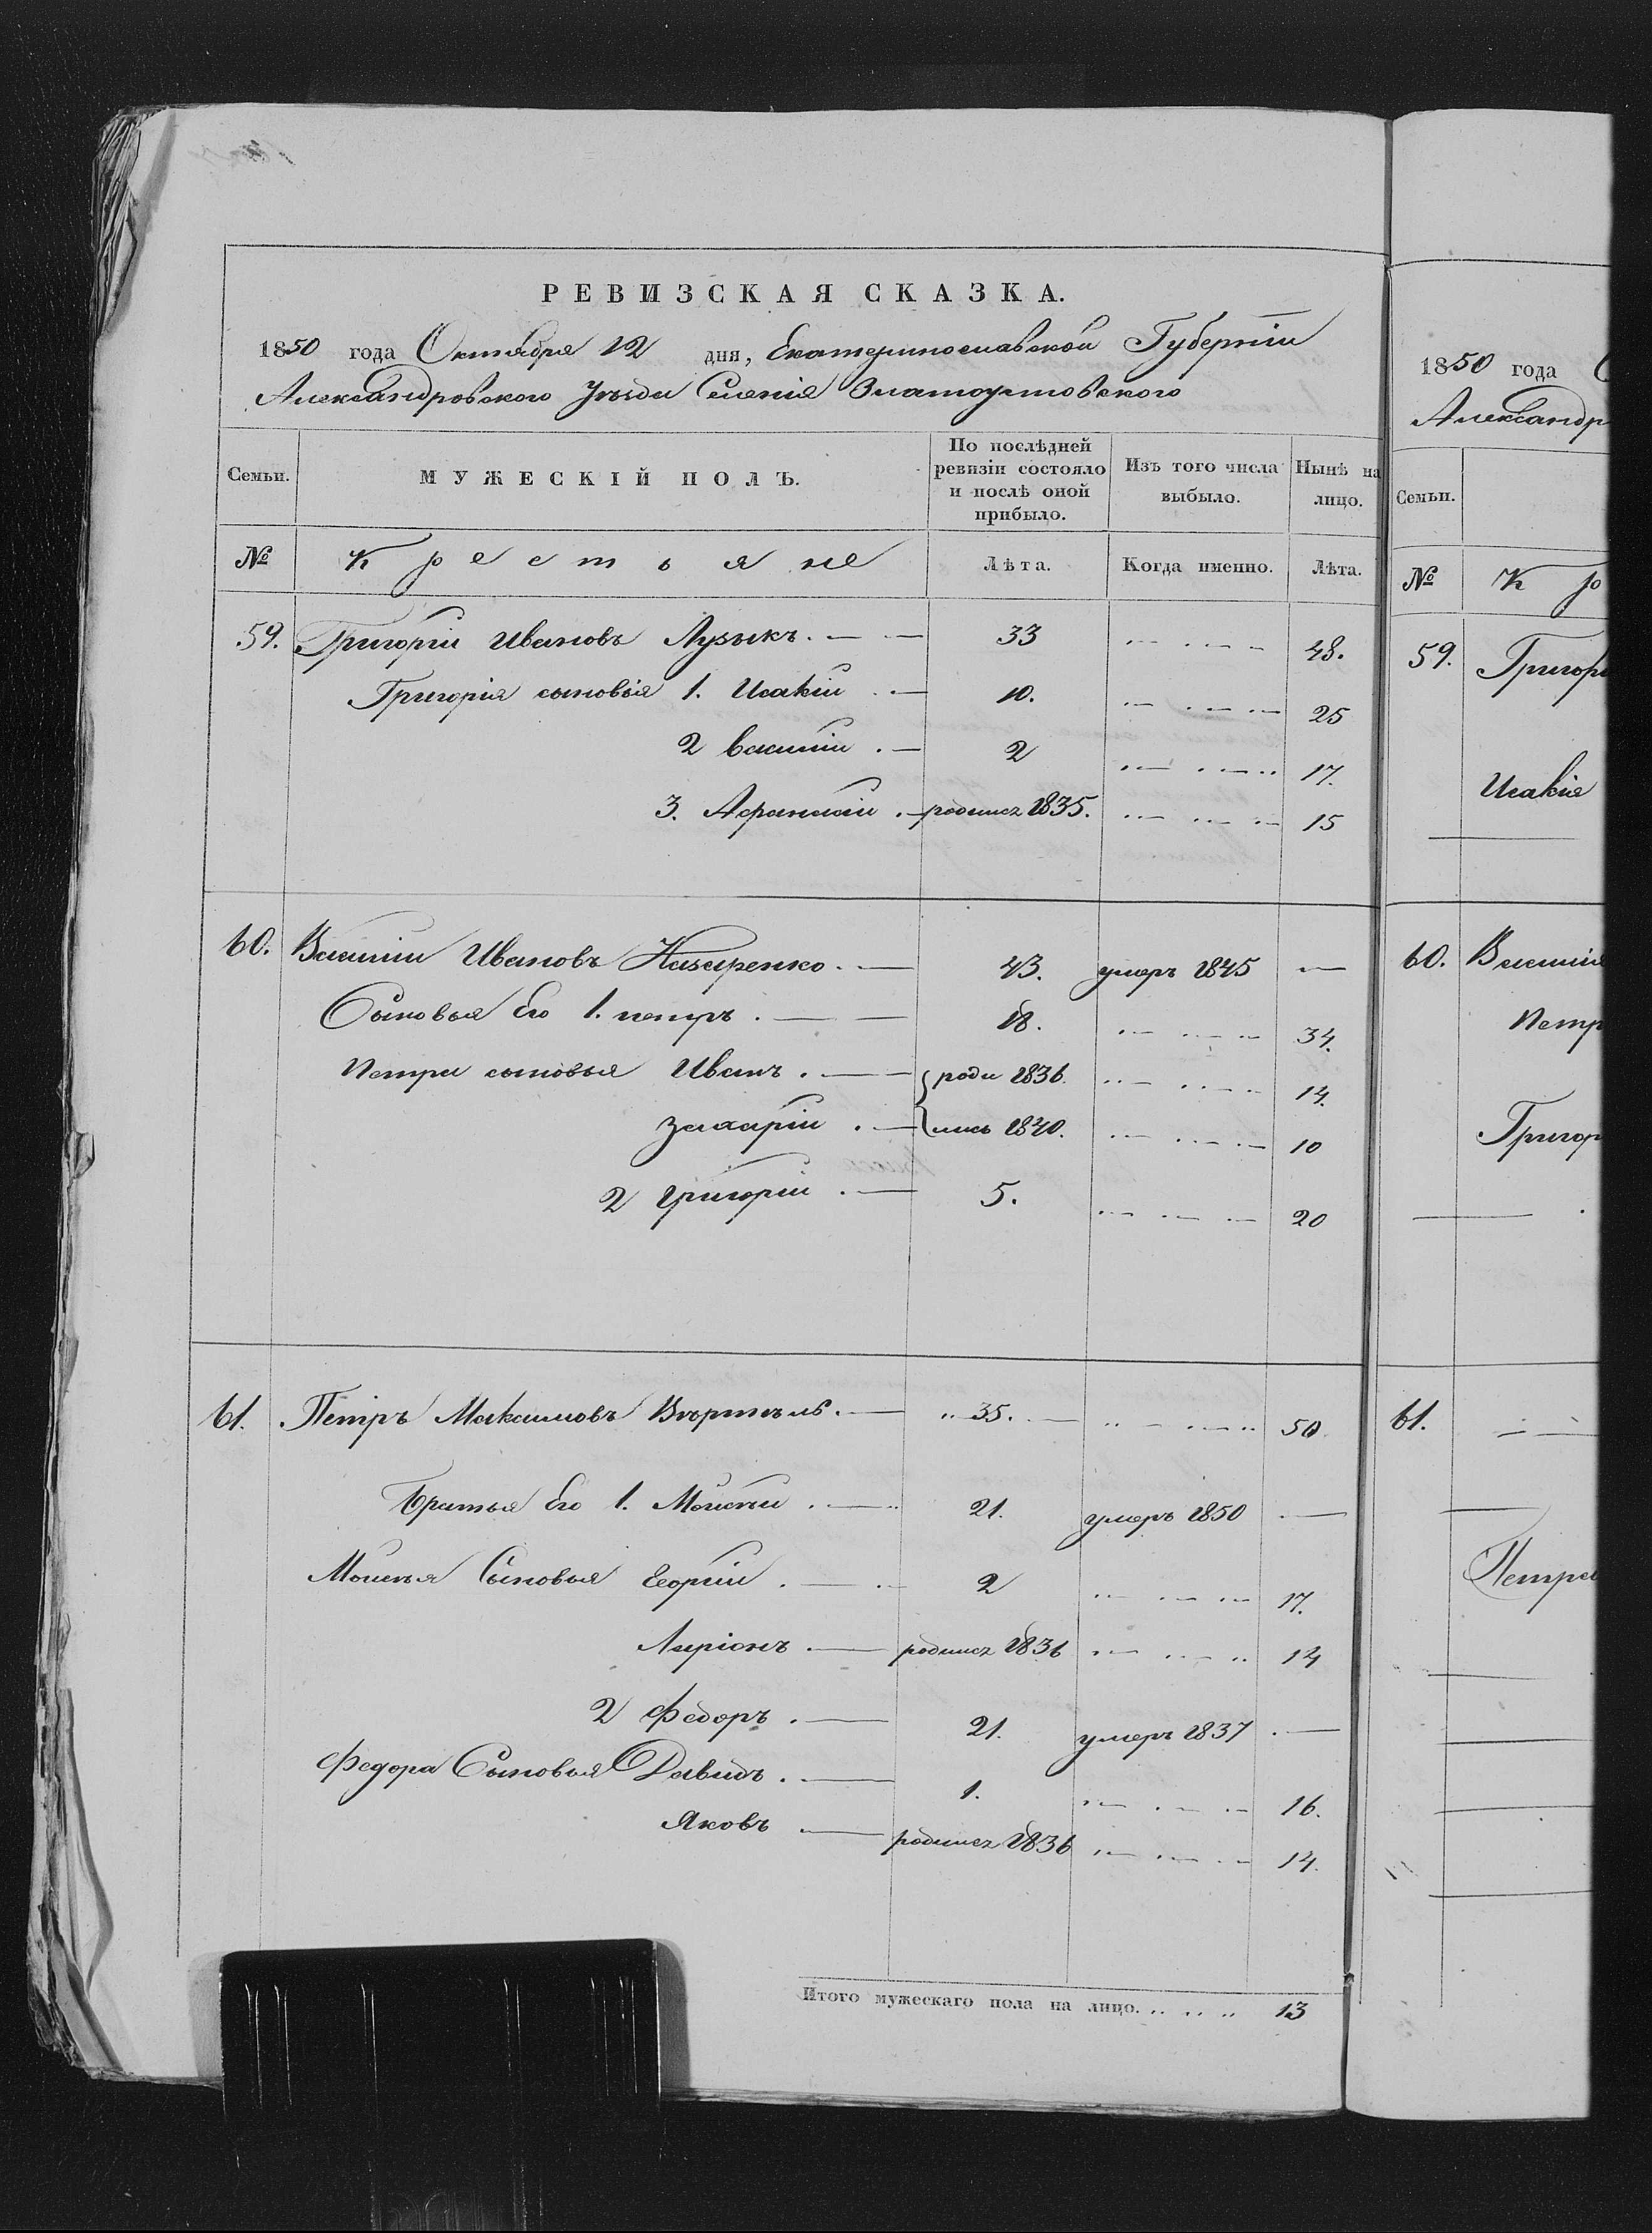 РЕВИЗСКАЯ СКАЗКА.
1850 года Октября 12 дня, Екатеринославской Губерніи
Александровского Уѣзда Селенія Златоустовского
Семьи. МУЖЕСКІЙ ПОЛЪ. По послѣдней ревизіи состояло и послѣ оной прибыло. Изъ того числа выбыло. Нынѣ на лицо.
№ Крестьяне Лѣта. Когда именно. Лѣта.
59. Григорій Ивановъ Лузыкъ. 33 48.
Григорія сыновья 1. Исакій 10. 25
2 василій 2 17.
3. Афанасій родился 1835. 15
60. Василій Ивановъ Назаренко. 43. умеръ 1845
Сыновья Его 1. петръ. 18. 34.
Петра сыновья Иванъ. роди 1836. 14.
захарій лись 1840. 10
2 григорій 5. 20
61. Петръ Максимовъ Вѣртѣль. 35. 50
Братья Его 1. Моисѣй 21. умеръ 1850
Моисѣя Сыновья Георгій 2 17.
Ларіонъ родился 1836 14
2 Федоръ 21. умеръ 1837
Федора Сыновья Давидъ 1. 16.
Яковъ родился 1836 14.
Итого мужескаго пола на лицо. 13
1850 года
Александр
Семьи.
№ К р
59. Григор
Исакія
60. Василія
Петр
Григор
61.
Петра